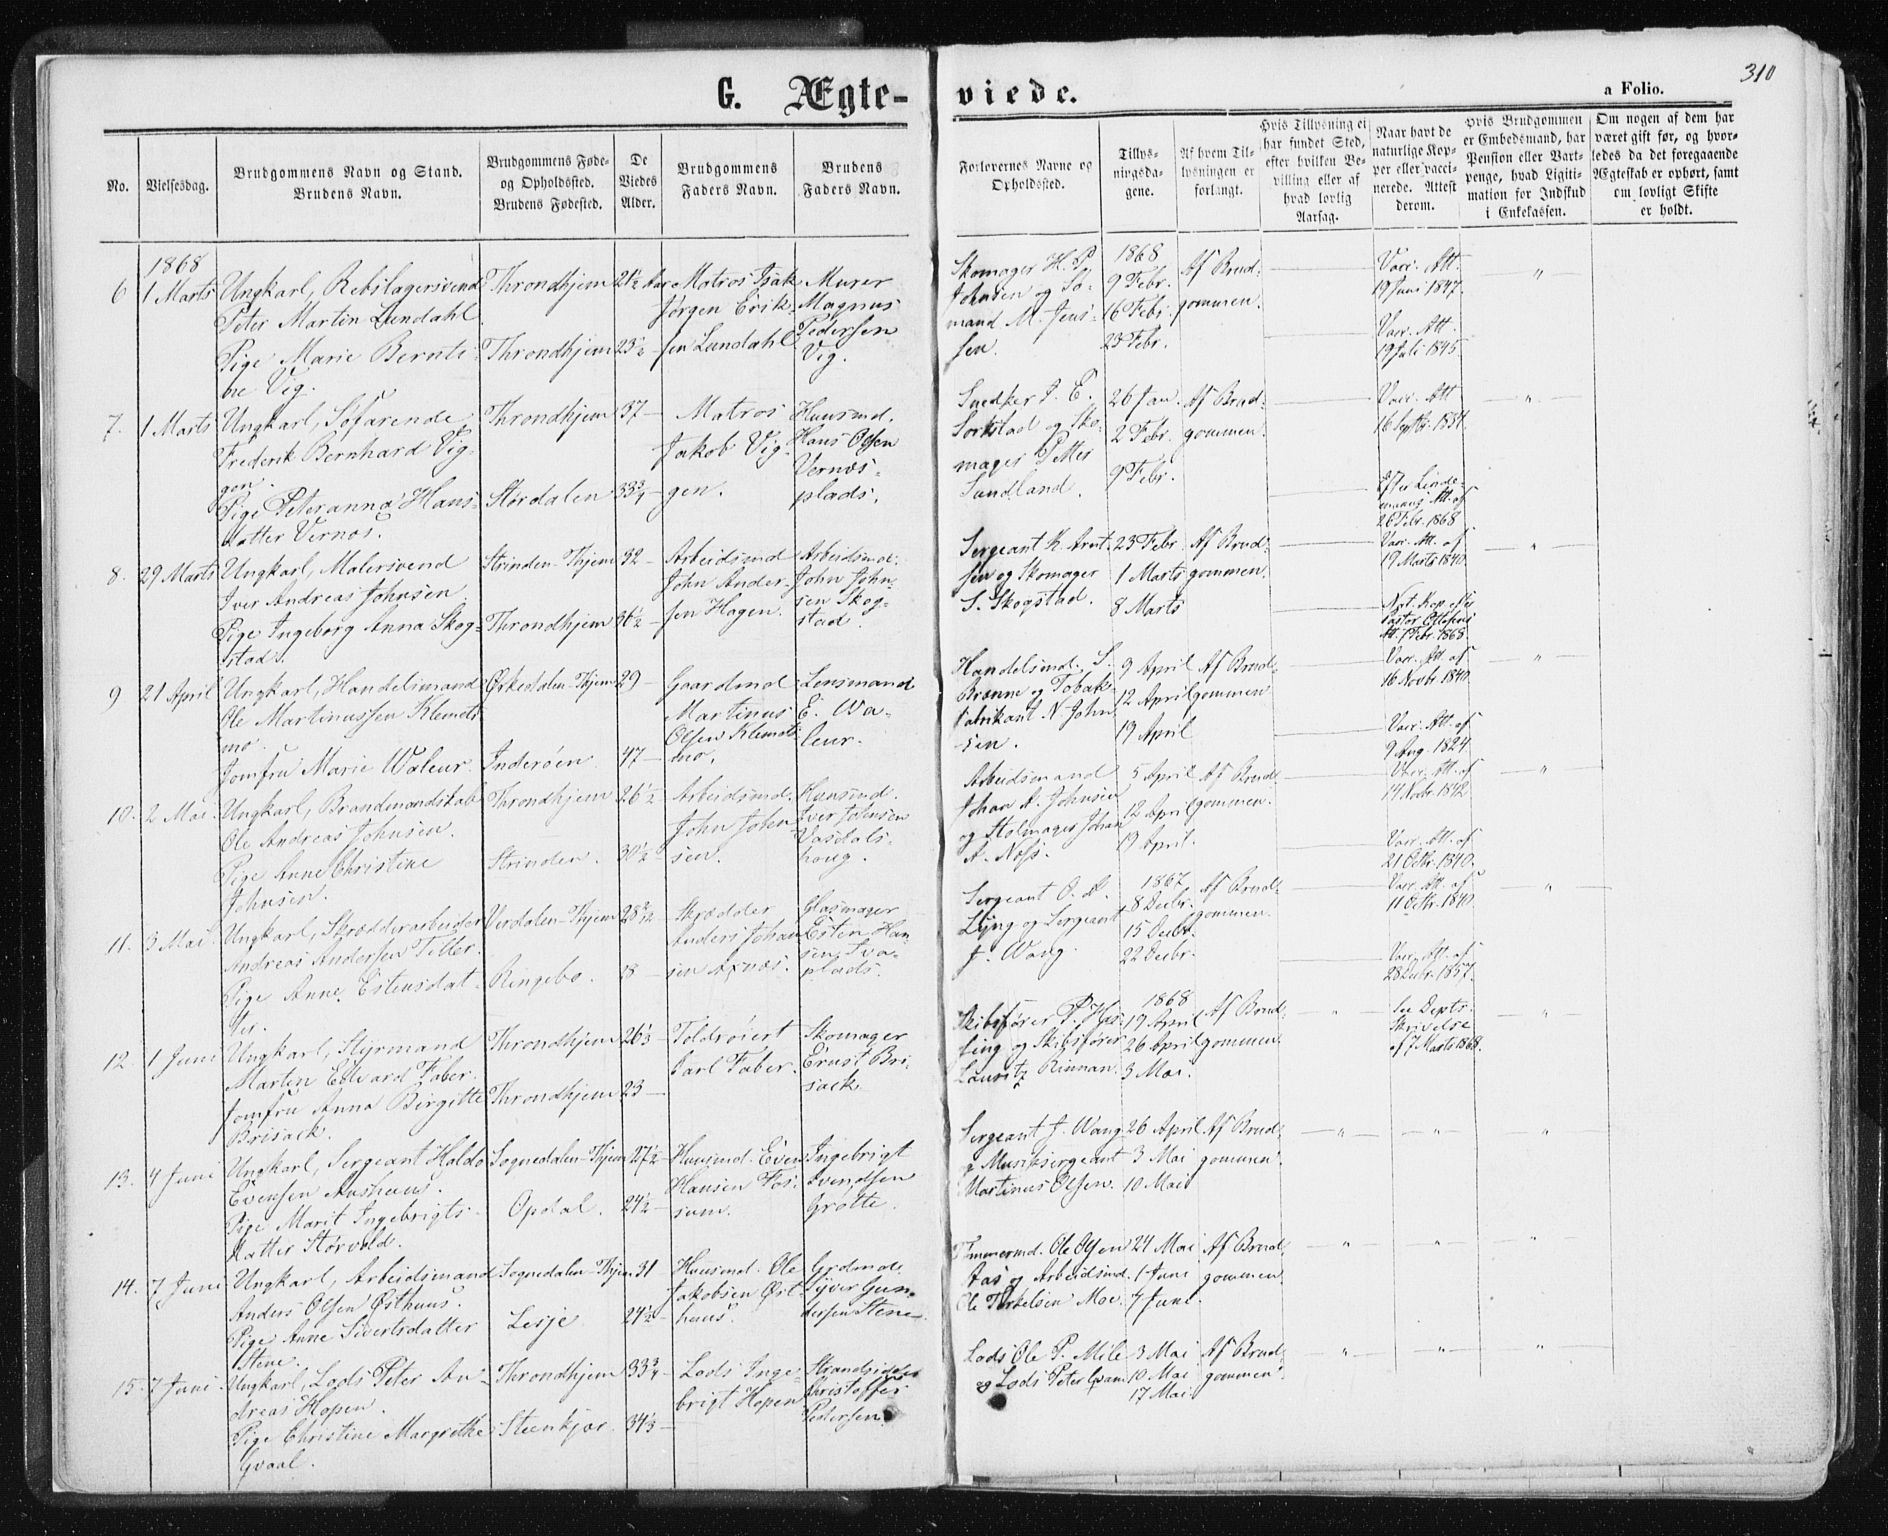 310
G. Ægte-
viede.
a Folio.
No.
Vielsesdag.
Brudgommens Navn og Stand.
Brudens Navn.
Brudgommens Føde-
og Opholdssted.
Brudens Fødested.
De
Viedes
Alder.
Brudgommens
Faders Navn.
Brudens
Faders Navn.
Forlovernes Navne og
Opholdssted.
Tillys-
ningsda-
gene.
Af hvem Til-
lysningen er
forlangt.
Hvis Tillysning ei
har fundet Sted,
efter hvilken Be-
villing eller af
hvad lovlig
Aarsag.
Naar havt de
naturlige Kop-
per eller vacci-
nerede. Attest
derom.
Hvis Brudgommen
er Embedsmand, har
Pension eller Vart-
penge, hvad Ligiti-
mation for Indskud
i Enkekassen.
Om nogen af dem har
været gift før, og hvor-
ledes da det foregaaende
Ægteskab er ophørt, samt
om lovligt Skifte
er holdt.
1868
6
1 Marts
Ungkarl, Rebslagersvend
Peter Martin Lundahl
Pige Marie Bernti-
ne Vig.
Throndhjem
Throndhjem
21½ Aar
23½
Matros Isak
Jørgen Erik-
sen Lundahl
Murer
Magnus
Pedersen
Vig.
Skomager H. P.
Johnsen og Sø-
mand M. Jens-
sen.
1868
9 Febr.
16 Febr.
23 Febr.
Af Brud-
gommen.
Vacc. Att.
19 Juni 1847.
Vacc. Att.
19 Juli 1845.
"
7.
1 Marts
Ungkarl, Søfarende
Frederik Bernhard Vig-
gen.
Pige Peteranna Hans-
datter Vernøs.
Throndhjem
Størdalen
37 -
33¾ -
Matros
Jakob Vig-
gen.
Huusmd.
Hans Olsen
Vernøs-
plads.
Snedker J. E.
Sortstad og Sko-
mager Petter
Sundland.
26 Jan.
2 Febr.
9 Febr.
Af Brud-
gommen.
Vacc. Att.
16 Septbr. 1834.
Efter Linde-
manns Att. af
26 Febr. 1868
"
8.
29 Marts
Ungkarl, Malersvend
Iver Andreas Johnsen.
Pige Ingeborg Anna Skog-
stad.
Strinden - Thjem
Throndhjem
32 -
Arbeidsmd
John Ander-
sen Hagen.
Arbeidsmd.
John John-
sen Skog-
stad.
Sergeant K. Arnt-
sen og Skomager
S. Skogstad.
23 Febr.
1 Marts
8 Marts
Af Brud-
gommen.
Vacc. Att. af
19 Marts 1840.
Nat. Kop. efter
Pastor Ottesens
Att. 1 Febr. 1868.
"
9
21 April
Ungkarl, Handelsmand
Ole Martinussen Klemets-
mo.
Jomfru Marie Waleur.
Ørkedalen - Thjem
Inderøen
29 -
47 -
Gaardmd
Martinus
Olsen Klemets-
mo.
Lensmand
E. Wa-
leur.
Handelsmd. S.
Brønne og Tobak-
fabrikant N. John-
sen.
9 April
12 April
19 April
Af Brud-
gommen
Vacc. Att. af
16 Novbr. 1840.
Vacc. Att. af
9 Aug. 1824.
"
10.
2 Mai.
Ungkarl, Brandmandskab
Ole Andreas Johnsen.
Pige Anne Christine
Johnsen.
Throndhjem
Strinden.
26½
30½
Arbeidsmd.
John John-
sen.
Huusmd.
Iver Johnsen
Vasdals-
houg.
Arbeidsmand
Johan A. Johnsen
og Stolmager Johan
A. Næss.
5 April
12 April
19 April.
Af Brud-
gommen.
Vacc. Att. af
14 Novbr. 1842
Vacc. Att. af
21 Octbr. 1840.
"
11.
3 Mai.
Ungkarl, Skrædderarbeider
Andreas Andersen Tiller.
Pige Anne Estensdat-
ter.
Verdalen - Thjem
Ringebo.
18 -
Skrædder
Anders Johan-
sen Axnæs.
Glasmager
Esten Han-
sen Sva-
plads.
Sergeant O. A.
Lyng og Sergeant
J. Wang.
1867
8 Decbr.
15 Decbr.
22 Decbr.
Af Brud-
gommen.
Vacc. Att. af
11 Octbr. 1840.
Vacc. Att. af
28 Decbr. 1857.
"
12.
1 Juni
Ungkarl, Styrmand
Martin Edvard Faber.
Jomfru Anna Birgitte
Brisack.
Throndhjem
Throndhjem
26⅓
23 -
Toldrorert
Carl Faber.
Skomager
Ernst Bri-
sack
Skibsfører P. Hys-
sing og Skibsfører
Lauritz Rinnan.
1868
19 April
26 April
3 Mai.
Af Brud-
gommen.
"
See Depts.
Skrivelse
af 7 Marts 1868.
"
13.
4 Juni
Ungkarl, Sergeant Haldo
Evensen Aushaus.
Pige Marit Ingebrigts-
datter Størvold.
Sognedalen - Thjem
Opdal.
27½
24½ -
Huusmd. Even
Hansen Fos-
sum.
Ingebrigt
Svendsen
Grøtte.
Sergeant J. Wang
og Musiksergeant
Martinus Olsen.
26 April
3 Mai
10 Mai
Af Brud-
gommen.
"
"
"
14.
7 Juni
Ungkarl, Arbeidsmand
Anders Olsen Østhuus.
Pige Anne Sivertsdatter
Stene.
Sognedalen - Thjem
Lesje
31
24½ -
Huusmd. Ole
Jakobsen Øst-
huus.
Grdmd.
Syver Gun-
dersen Stene.
Tømmermd. Ole Olsen
Aas og Arbeidsmd.
Ole Torkelsen Moe.
24 Mai
1 Juni
7 Juni.
Af Brud-
gommen
"
"
"
15.
7 Juni.
Ungkarl, Lods Peter An-
dreas Hopen.
Pige Christine Margrethe
Gvaal.
Throndhjem
Steenkjær.
33¾
34⅓ -
Lods Inge-
brigt Hopen
Strandsidder
Christoffer
Pedersen.
Lods Ole P. Mile
og Lods Peter Gvam
3 Mai
10 Mai
17 Mai
Af Brud-
gommen.
"
"
"